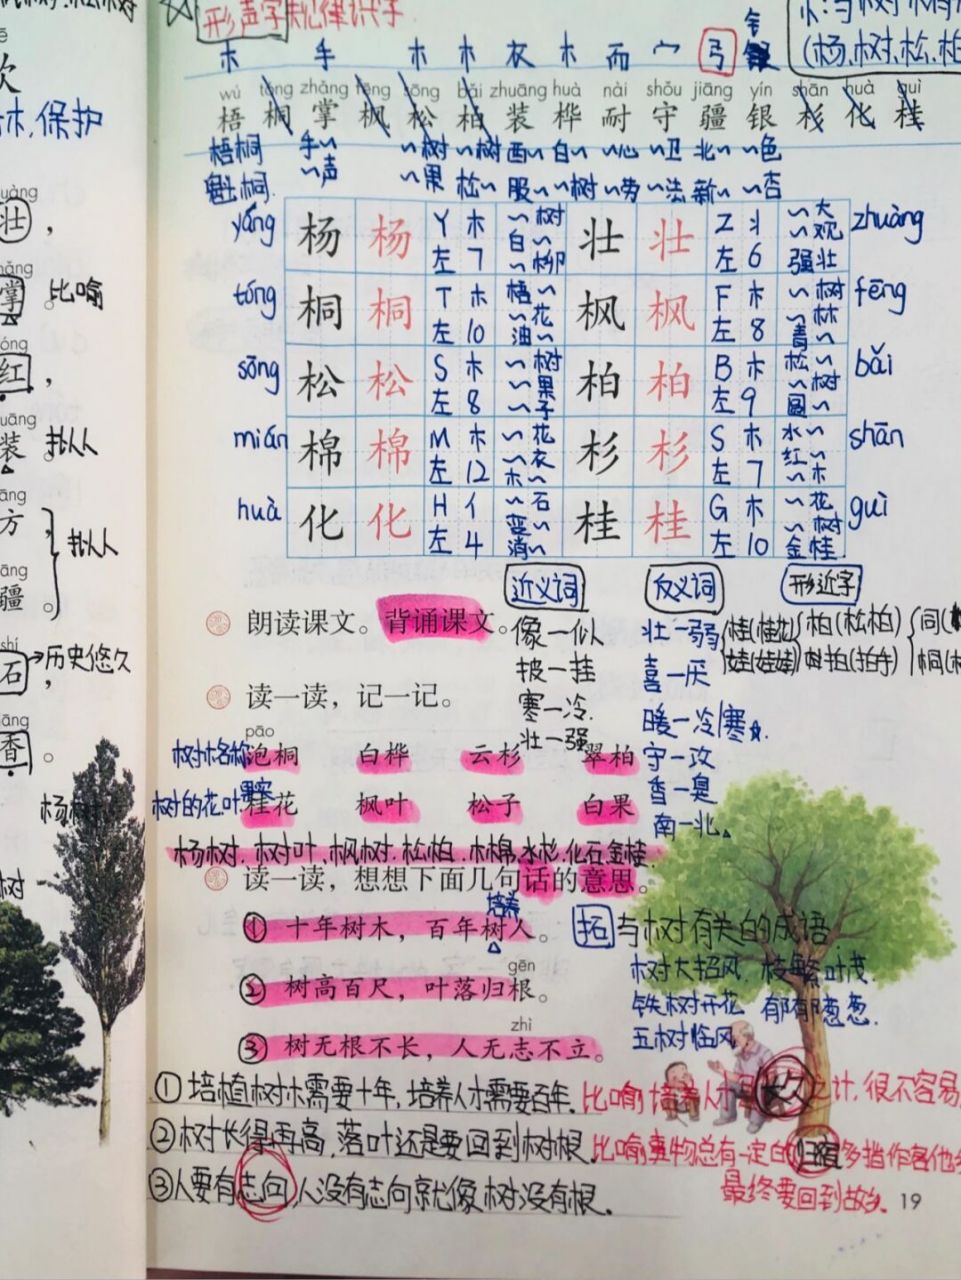 形声字规律识字
木 手 木 木 衣 木 而 宀 弓 钅
(杨、树、松、柏
wú tóng zhǎng fēng sōng bǎi zhuāng huà nài shǒu jiāng yín shān huà guì
梧 桐 掌 枫 松 柏 装 桦 耐 守 疆 银 杉 化 桂
梧桐 手~ ~树 ~树 西~ 白~ ~心 ~卫 北~ ~色
魁桐 ~声 ~果 松~ 服~ ~树 ~劳 ~法 新~ ~杏
yáng 杨 杨 Y 木 左 7 ~树 白~ ~柳 壮 壮 Z 丬 左 6 ~大 ~观 强壮 zhuàng
tóng 桐 桐 T 木 左 10 梧~ ~花 油~ 枫 枫 F 木 左 8 ~树 ~林 青~ fēng
sōng 松 松 S 木 左 8 ~树 ~果 ~子 柏 柏 B 木 左 9 松~ ~树 圆~ bǎi
mián 棉 棉 M 木 左 12 ~花 ~衣 木~ 杉 杉 S 木 左 7 水~ 红~ ~木 shān
huà 化 化 H 亻 左 4 ~石 变~ 消~ 桂 桂 G 木 左 10 ~花 ~树 金桂 guì
近义词 反义词 形近字
朗读课文。背诵课文。
像—似
披—挂
寒—冷
壮—强
壮—弱
喜—厌
暖—冷/寒
守—攻
香—臭
南—北
桂(桂花) 柏(松柏)
娃(娃娃) 拍(拍手)
读一读，记一记。
pāo
树木名称 泡桐 白桦 云杉 翠柏
树的花.叶.果实 桂花 枫叶 松子 白果
杨树.树叶.枫树.松柏.木棉.水杉.化石.金桂.
读一读，想想下面几句话的意思。
培养
① 十年树木，百年树人。
gēn
② 树高百尺，叶落归根。
zhì
③ 树无根不长，人无志不立。
拓 与树有关的成语
树大招风 枝繁叶茂
铁树开花 郁郁葱葱
五树临风
①培植树木需要十年,培养人才需要百年.
比喻培养人才是长久之计,很不容易
②树长得再高,落叶还是要回到树根.
比喻事物总有一定的归宿多指作客他乡
最终要回到故乡.
③人要有志向 人没有志向就像树没有根.
19
uàng
壮，
掌 比喻
红，
装 拟人
方 拟人
疆。
shí
石 →历史悠久
香。
杨树
树
林.保护